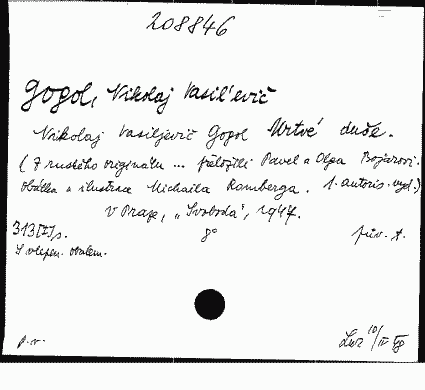 208846
Gogol, Nikolaj Vasil'evič
Nikolaj Vasiljevič Gogol Mrtvé duše.
(Z ruského originálu ... přeložili Pavel a Olga Bojarovi.
obálka a ilustrace Michaila Romberga. 1. autoris. vyd.)
V Praze, „Svoboda", 1947.
313 [I] s. 8° prův. A.
S vlepen. obalem.
p. v.